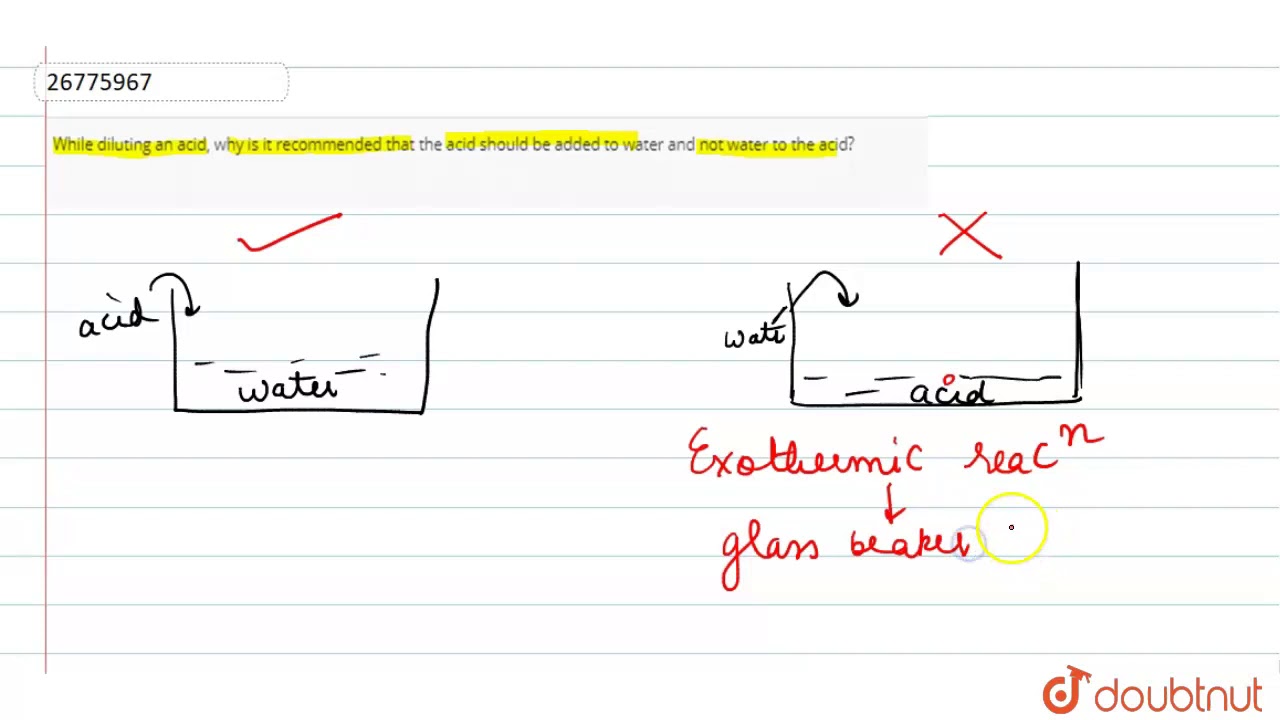 26775967
While diluting an acid, why is it recommended that the acid should be added to water and not water to the acid?
acid
water
wate
acid
Exothermic reacⁿ
glass beaker
doubtnut